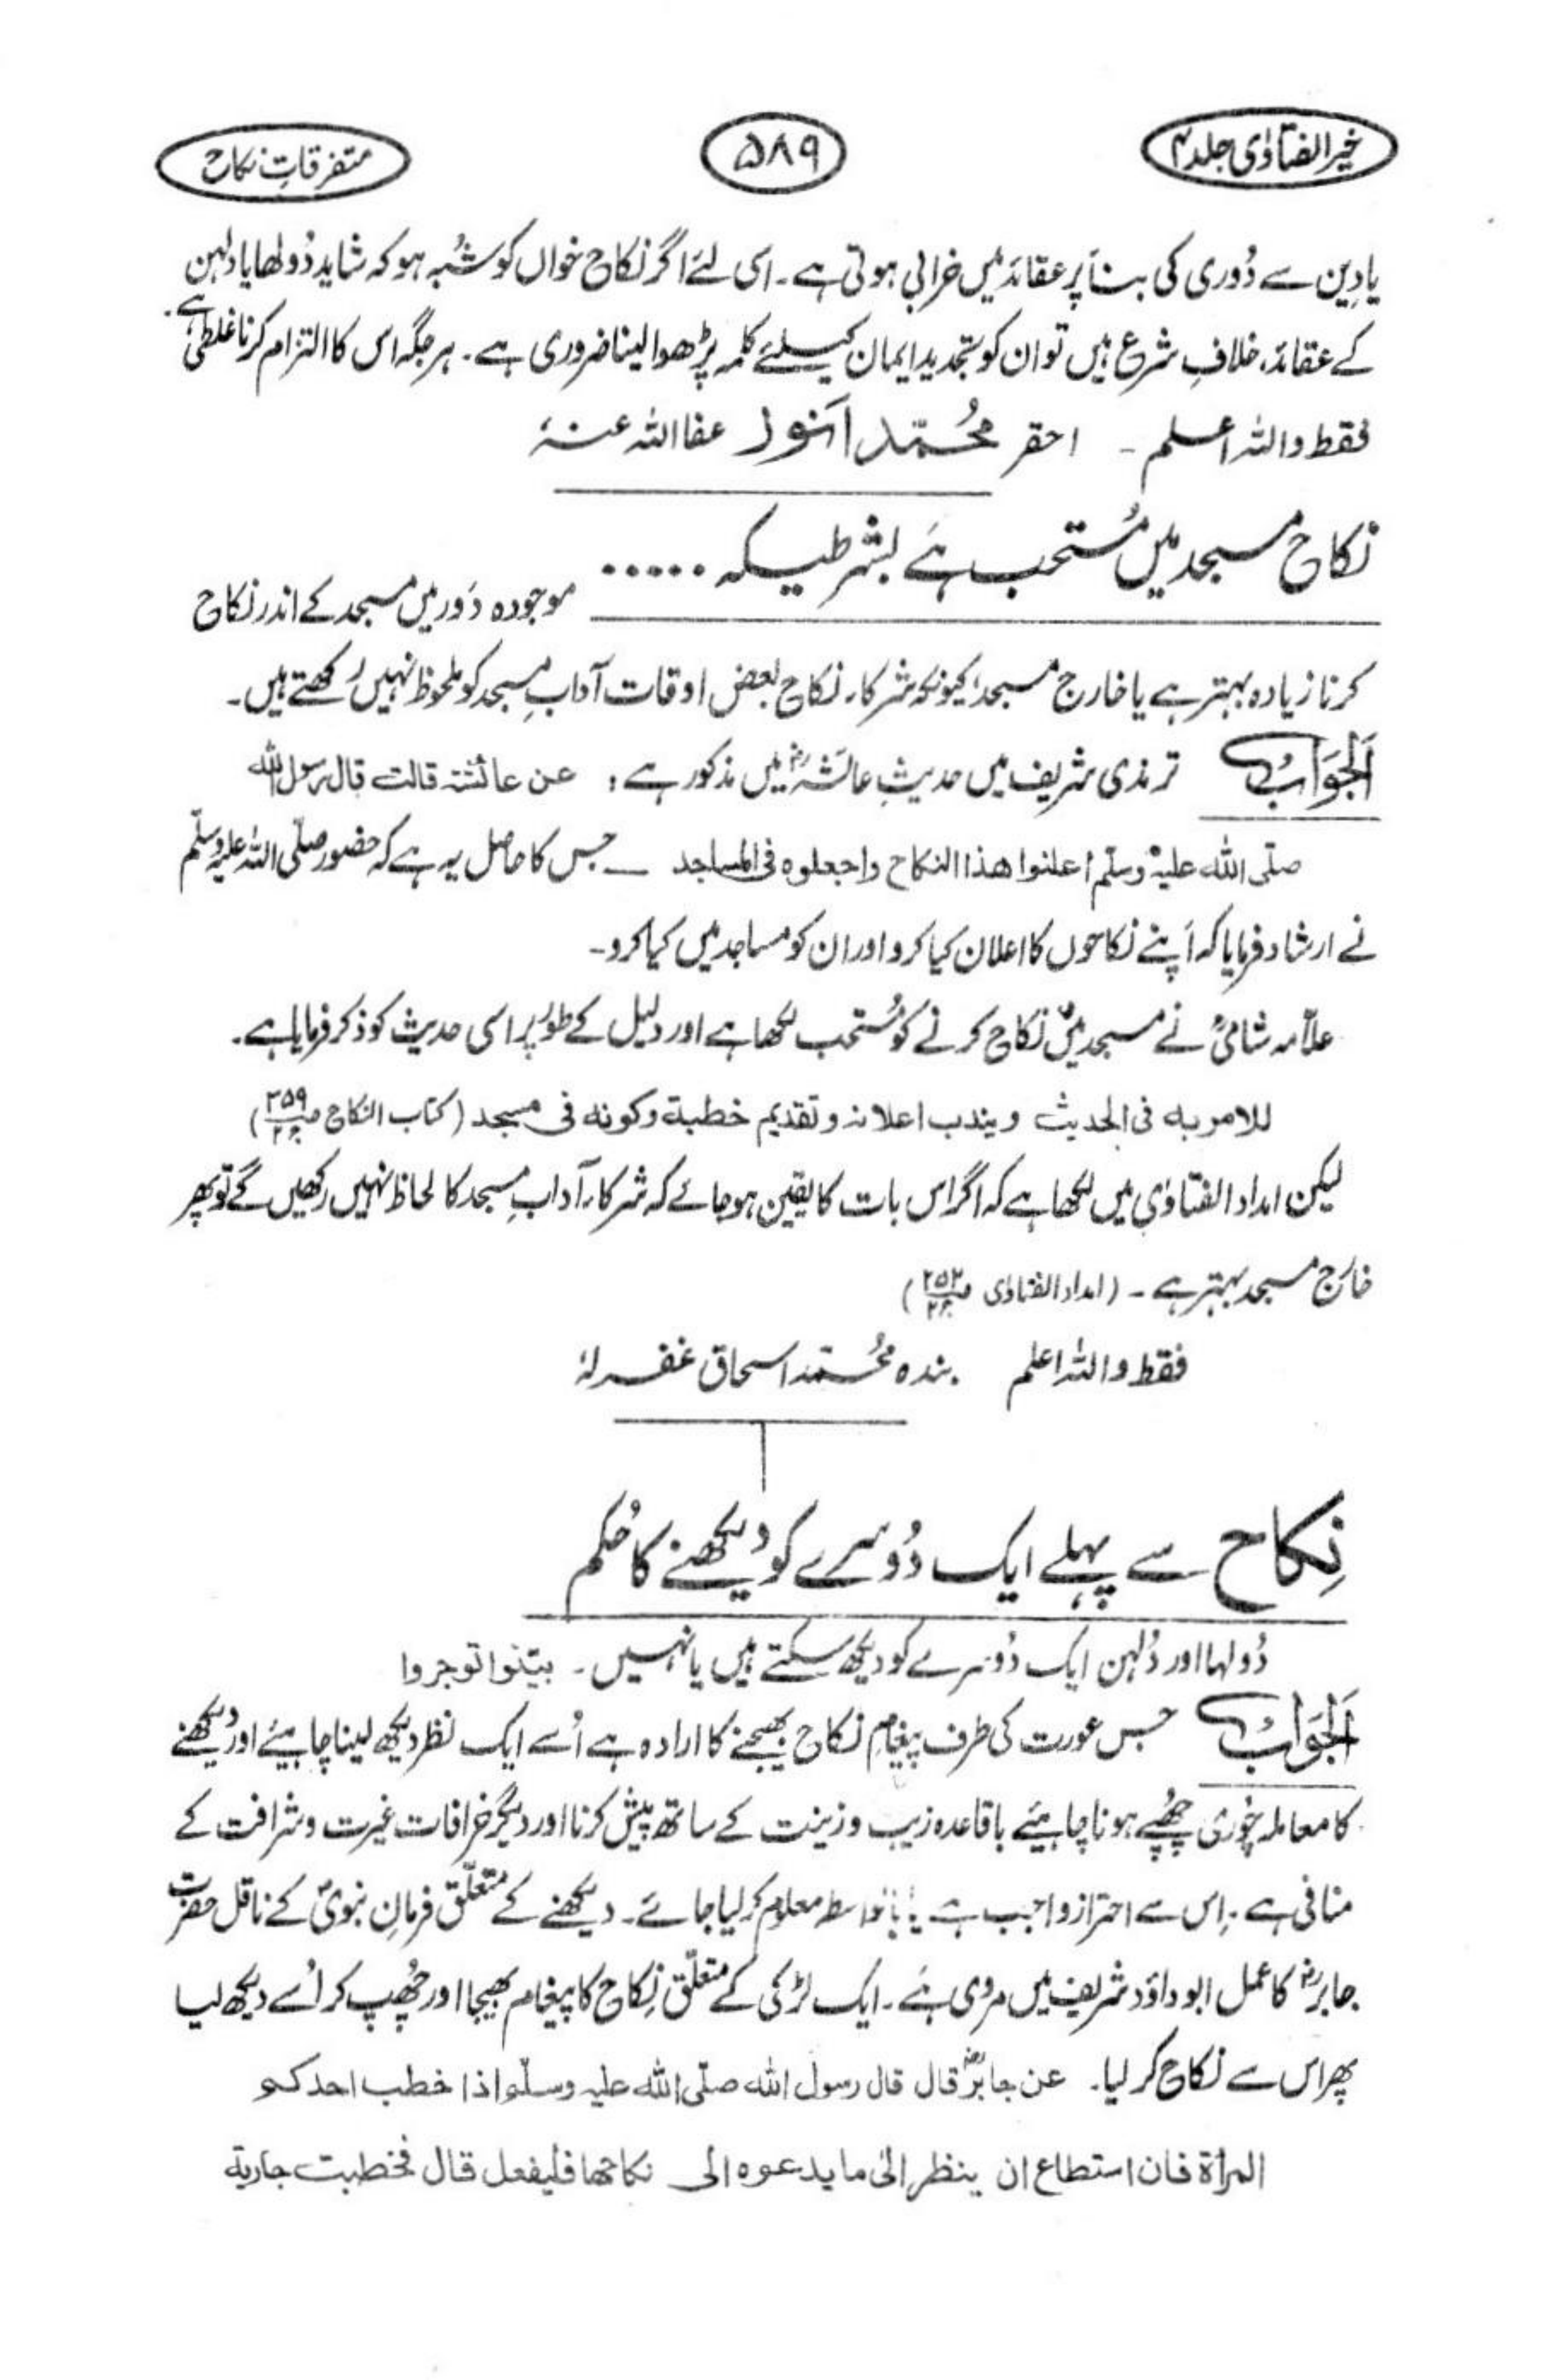 خیر الفتاوٰی جلد ۴
۵۸۹
متفرقاتِ نکاح
یا دِین سے دُوری کی بناَ پر عقائد میں خرابی ہوتی ہے۔ اسی لئے اگر نکاح خواں کو شُبہ ہو کہ شاید دُولھا یا دلہن
کے عقائد، خلافِ شرع ہیں تو ان کو تجدید ایمان کیلئے کلمہ پڑھوا لینا ضروری ہے۔ ہر جگہ اس کا التزام کرنا غلطی ہے۔
فقط واللہ اعلم۔ احقر محُمّد اَنور عفا اللہ عنہٗ
نکاح مسجد میں مُستحب ہَے بشرطیکہ ۰۰۰۰۰
موجودہ دَور میں مسجد کے اندر نکاح
کرنا زیادہ بہتر ہے یا خارج مسجد، کیونکہ شرکاء نکاح بعض اوقات آدابِ مسجد کو ملحوظ نہیں رکھتے ہیں۔
اَلجَوَابُ ترمذی شریف میں حدیثِ عائشہؓ میں مذکور ہے: عن عائشۃ قالت قال رسول اللہ
صلّی اللہ علیہ وسلّم اعلنوا ھذا النکاح واجعلوہ فی المساجد ــ جس کا حاصل یہ ہے کہ حضور صلّی اللہ علیہ وسلّم
نے ارشاد فرمایا کہ اَپنے نکاحوں کا اعلان کیا کرو اور ان کو مساجد میں کیا کرو۔
علاّمہ شامیؒ نے مسجد میں نکاح کرنے کو مُستحب لکھا ہے اور دلیل کے طور پر اسی حدیث کو ذکر فرمایا ہے۔
للامر بہ فی الحدیث ویندب اعلانہ وتقدیم خطبۃ وکونہ فی مسجد (کتاب النکاح ص۲۵۹ ج۲)
لیکن امداد الفتاوٰی میں لکھا ہے کہ اگر اس بات کا یقین ہو جائے کہ شرکاء آدابِ مسجد کا لحاظ نہیں رکھیں گے تو پھر
خارَج مسجد بہتر ہے۔ (امداد الفتاوٰی ص۲۵۲ ج۲)
فقط واللہ اعلم بندہ محُمّد اسحاق غفرلہٗ
نِکاح سے پہلے ایک دُوسرے کو دیکھنے کا حُکم
دُولہا اور دُلہن ایک دُوسرے کو دیکھ سکتے ہیں یا نہیں۔ بیّنوا توجروا
اَلجَوَابُ جس عورت کی طرف پیغامِ نکاح بھیجنے کا ارادہ ہے اُسے ایک نظر دیکھ لینا چاہیئے اور دیکھنے
کا معاملہ چوری چھُپے ہونا چاہیئے باقاعدہ زیب و زینت کے ساتھ پیش کرنا اور دیگر خرافات غیرت و شرافت کے
منافی ہے۔ اِس سے احتراز واجب ہے یا بالواسطہ معلوم کر لیا جائے۔ دیکھنے کے متعلّق فرمانِ نبویؐ کے ناقل حضرت
جابرؓ کا عمل ابوداؤد شریف میں مروی ہَے۔ ایک لڑکی کے متعلّق نِکاح کا پیغام بھیجا اور چھُپ کر اُسے دیکھ لیا
پھر اس سے نکاح کر لیا۔ عن جابرؓ قال قال رسول اللہ صلّی اللہ علیہ وسلّم اذا خطب احدکم
المرأۃ فان استطاع ان ینظر الیٰ ما یدعوہ الی نکاحھا فلیفعل قال فخطبت جاریۃ